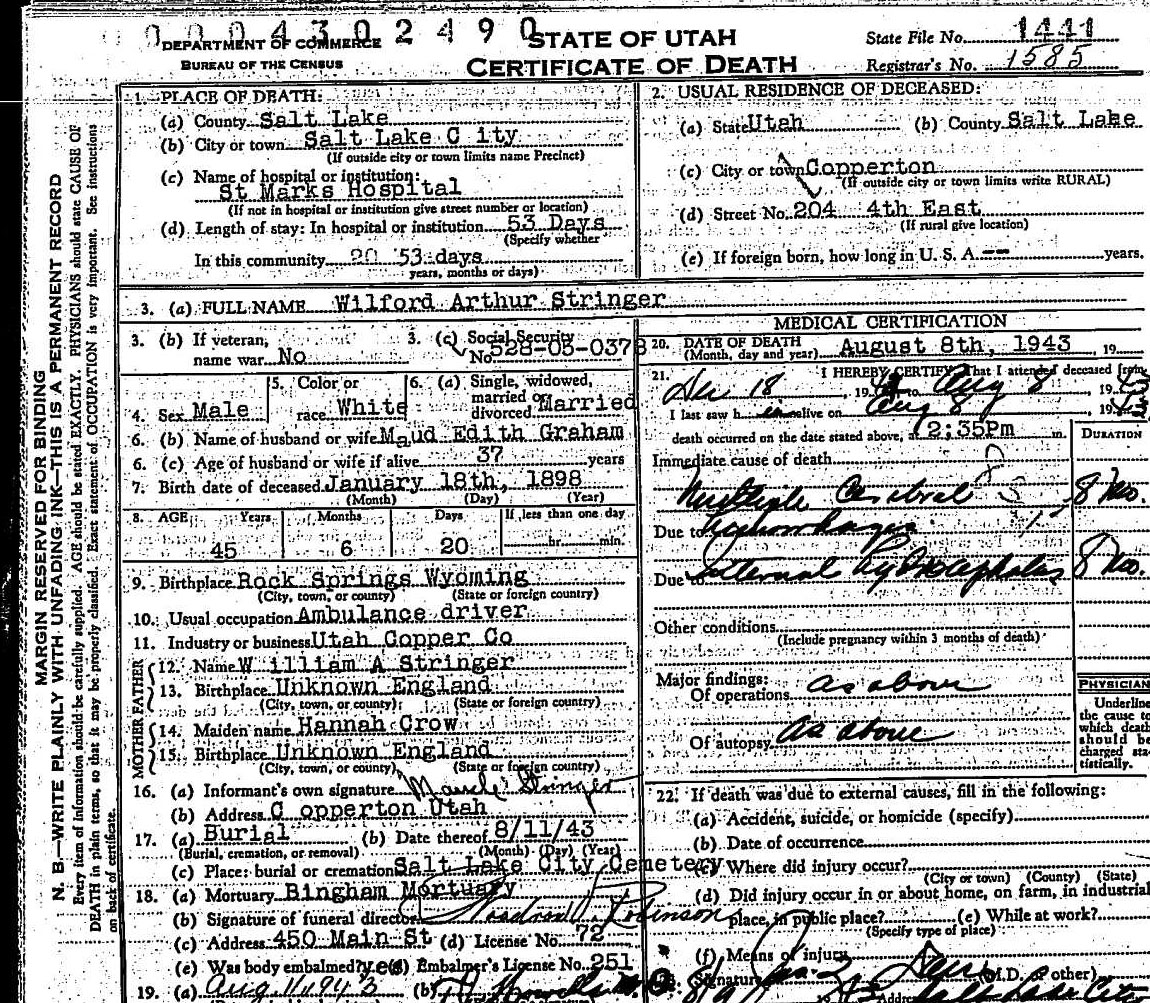 0004302490
DEPARTMENT OF COMMERCE
BUREAU OF THE CENSUS
STATE OF UTAH
CERTIFICATE OF DEATH
State File No. 1441
Registrar's No. 1585
MARGIN RESERVED FOR BINDING
N. B.—WRITE PLAINLY WITH UNFADING INK—THIS IS A PERMANENT RECORD
Every item of information should be carefully supplied. AGE should be stated EXACTLY. PHYSICIANS should state CAUSE OF
DEATH in plain terms, so that it may be properly classified. Exact statement of OCCUPATION is very important. See instructions
on back of certificate.
1. PLACE OF DEATH:
(a) County Salt Lake
(b) City or town Salt Lake C ity
(If outside city or town limits name Precinct)
(c) Name of hospital or institution:
St Marks Hospital
(If not in hospital or institution give street number or location)
(d) Length of stay: In hospital or institution 53 Days
(Specify whether
In this community 20 53 days
years, months or days)
2. USUAL RESIDENCE OF DECEASED:
(a) State Utah (b) County Salt Lake
(c) City or town Copperton
(If outside city or town limits write RURAL)
(d) Street No. 204 4th East
(If rural give location)
(e) If foreign born, how long in U. S. A. -- years.
3. (a) FULL NAME Wilford Arthur Stringer
3. (b) If veteran,
name war No
3. (c) Social Security
No 528-05-0378
4. Sex Male
5. Color or
race White
6. (a) Single, widowed,
married or
divorced Married
6. (b) Name of husband or wife Maud Edith Graham
6. (c) Age of husband or wife if alive 37 years
7. Birth date of deceased January 18th, 1898
(Month) (Day) (Year)
8. AGE Years Months Days If less than one day
45 6 20 hr. min.
9. Birthplace Rock Springs Wyoming
(City, town, or county) (State or foreign country)
10. Usual occupation Ambulance driver
11. Industry or business Utah Copper Co
FATHER
12. Name W illiam A Stringer
13. Birthplace Unknown England
(City, town, or county) (State or foreign country)
MOTHER
14. Maiden name Hannah Crow
15. Birthplace Unknown England
(City, town, or county) (State or foreign country)
16. (a) Informant's own signature Maude Stringer
(b) Address C opperton Utah
17. (a) Burial (b) Date thereof 8/11/43
(Burial, cremation, or removal) (Month) (Day) (Year)
(c) Place: burial or cremation Salt Lake City Cemetery
18. (a) Mortuary Bingham Mortuary
(b) Signature of funeral director Robinson
(c) Address 450 Main St (d) License No. 72
(e) Was body embalmed? yes (f) Embalmer's License No. 251
19. (a) Aug 11 1943 (b)
MEDICAL CERTIFICATION
20. DATE OF DEATH
(Month, day and year) August 8th, 1943, 19
21. I HEREBY CERTIFY, That I attended deceased from
Dec 18, 1942 to Aug 8, 1943
I last saw him alive on Aug 8, 1943
death occurred on the date stated above, at 2:35Pm m.
DURATION
Immediate cause of death
Multiple Cerebral 8 Mo.
Due to hemorrhages
Due to internal hydrocephalus 8 Mo.
Other conditions
(Include pregnancy within 3 months of death)
Major findings:
Of operations as above
Of autopsy As above
PHYSICIAN
Underline
the cause to
which death
should be
charged sta-
tistically.
22. If death was due to external causes, fill in the following:
(a) Accident, suicide, or homicide (specify)
(b) Date of occurrence
(c) Where did injury occur?
(City or town) (County) (State)
(d) Did injury occur in or about home, on farm, in industrial
place, in public place? (e) While at work?
(Specify type of place)
(f) Means of injury
Signature (M.D. or other)
Address Salt Lake City